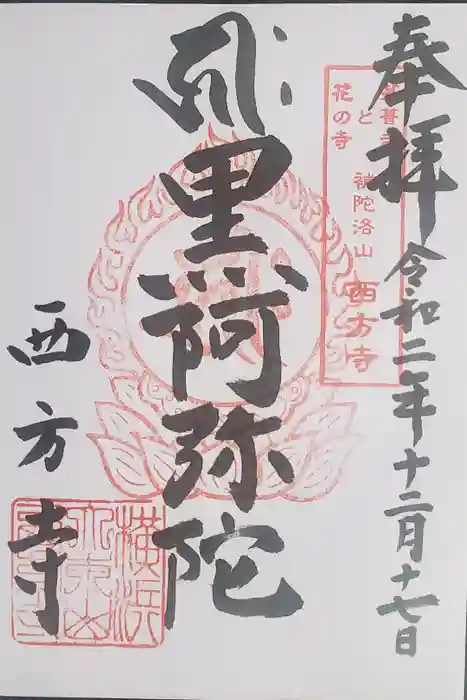 奉拝
令和二年十二月十七日
と
花の寺
補陀洛山
西方寺
黒阿弥陀
西方寺
横浜